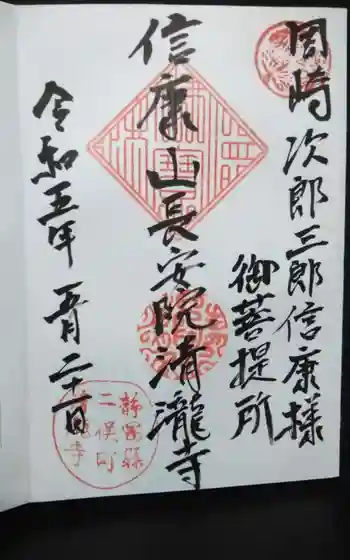 岡崎次郎三郎信康様
御菩提所
信康山長安院清瀧寺
令和五年五月二十一日
静岡縣
二俣町
清瀧寺